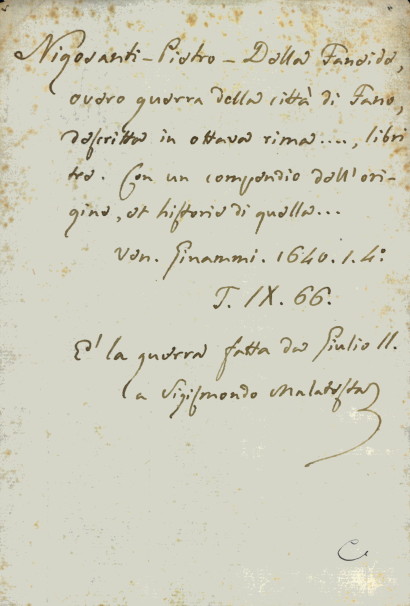 Nigosanti - Pietro - Della Faneide,
overo guerra della città di Fano,
descritta in ottava rima...., libri
tre. Con un compendio dell'ori-
gine, et historia di quella...
Ven. Ginammi. 1640. 1. 4°
T. IX. 66.
E' la guerra fatta da Giulio II.
a Sigismondo Malatesta
C